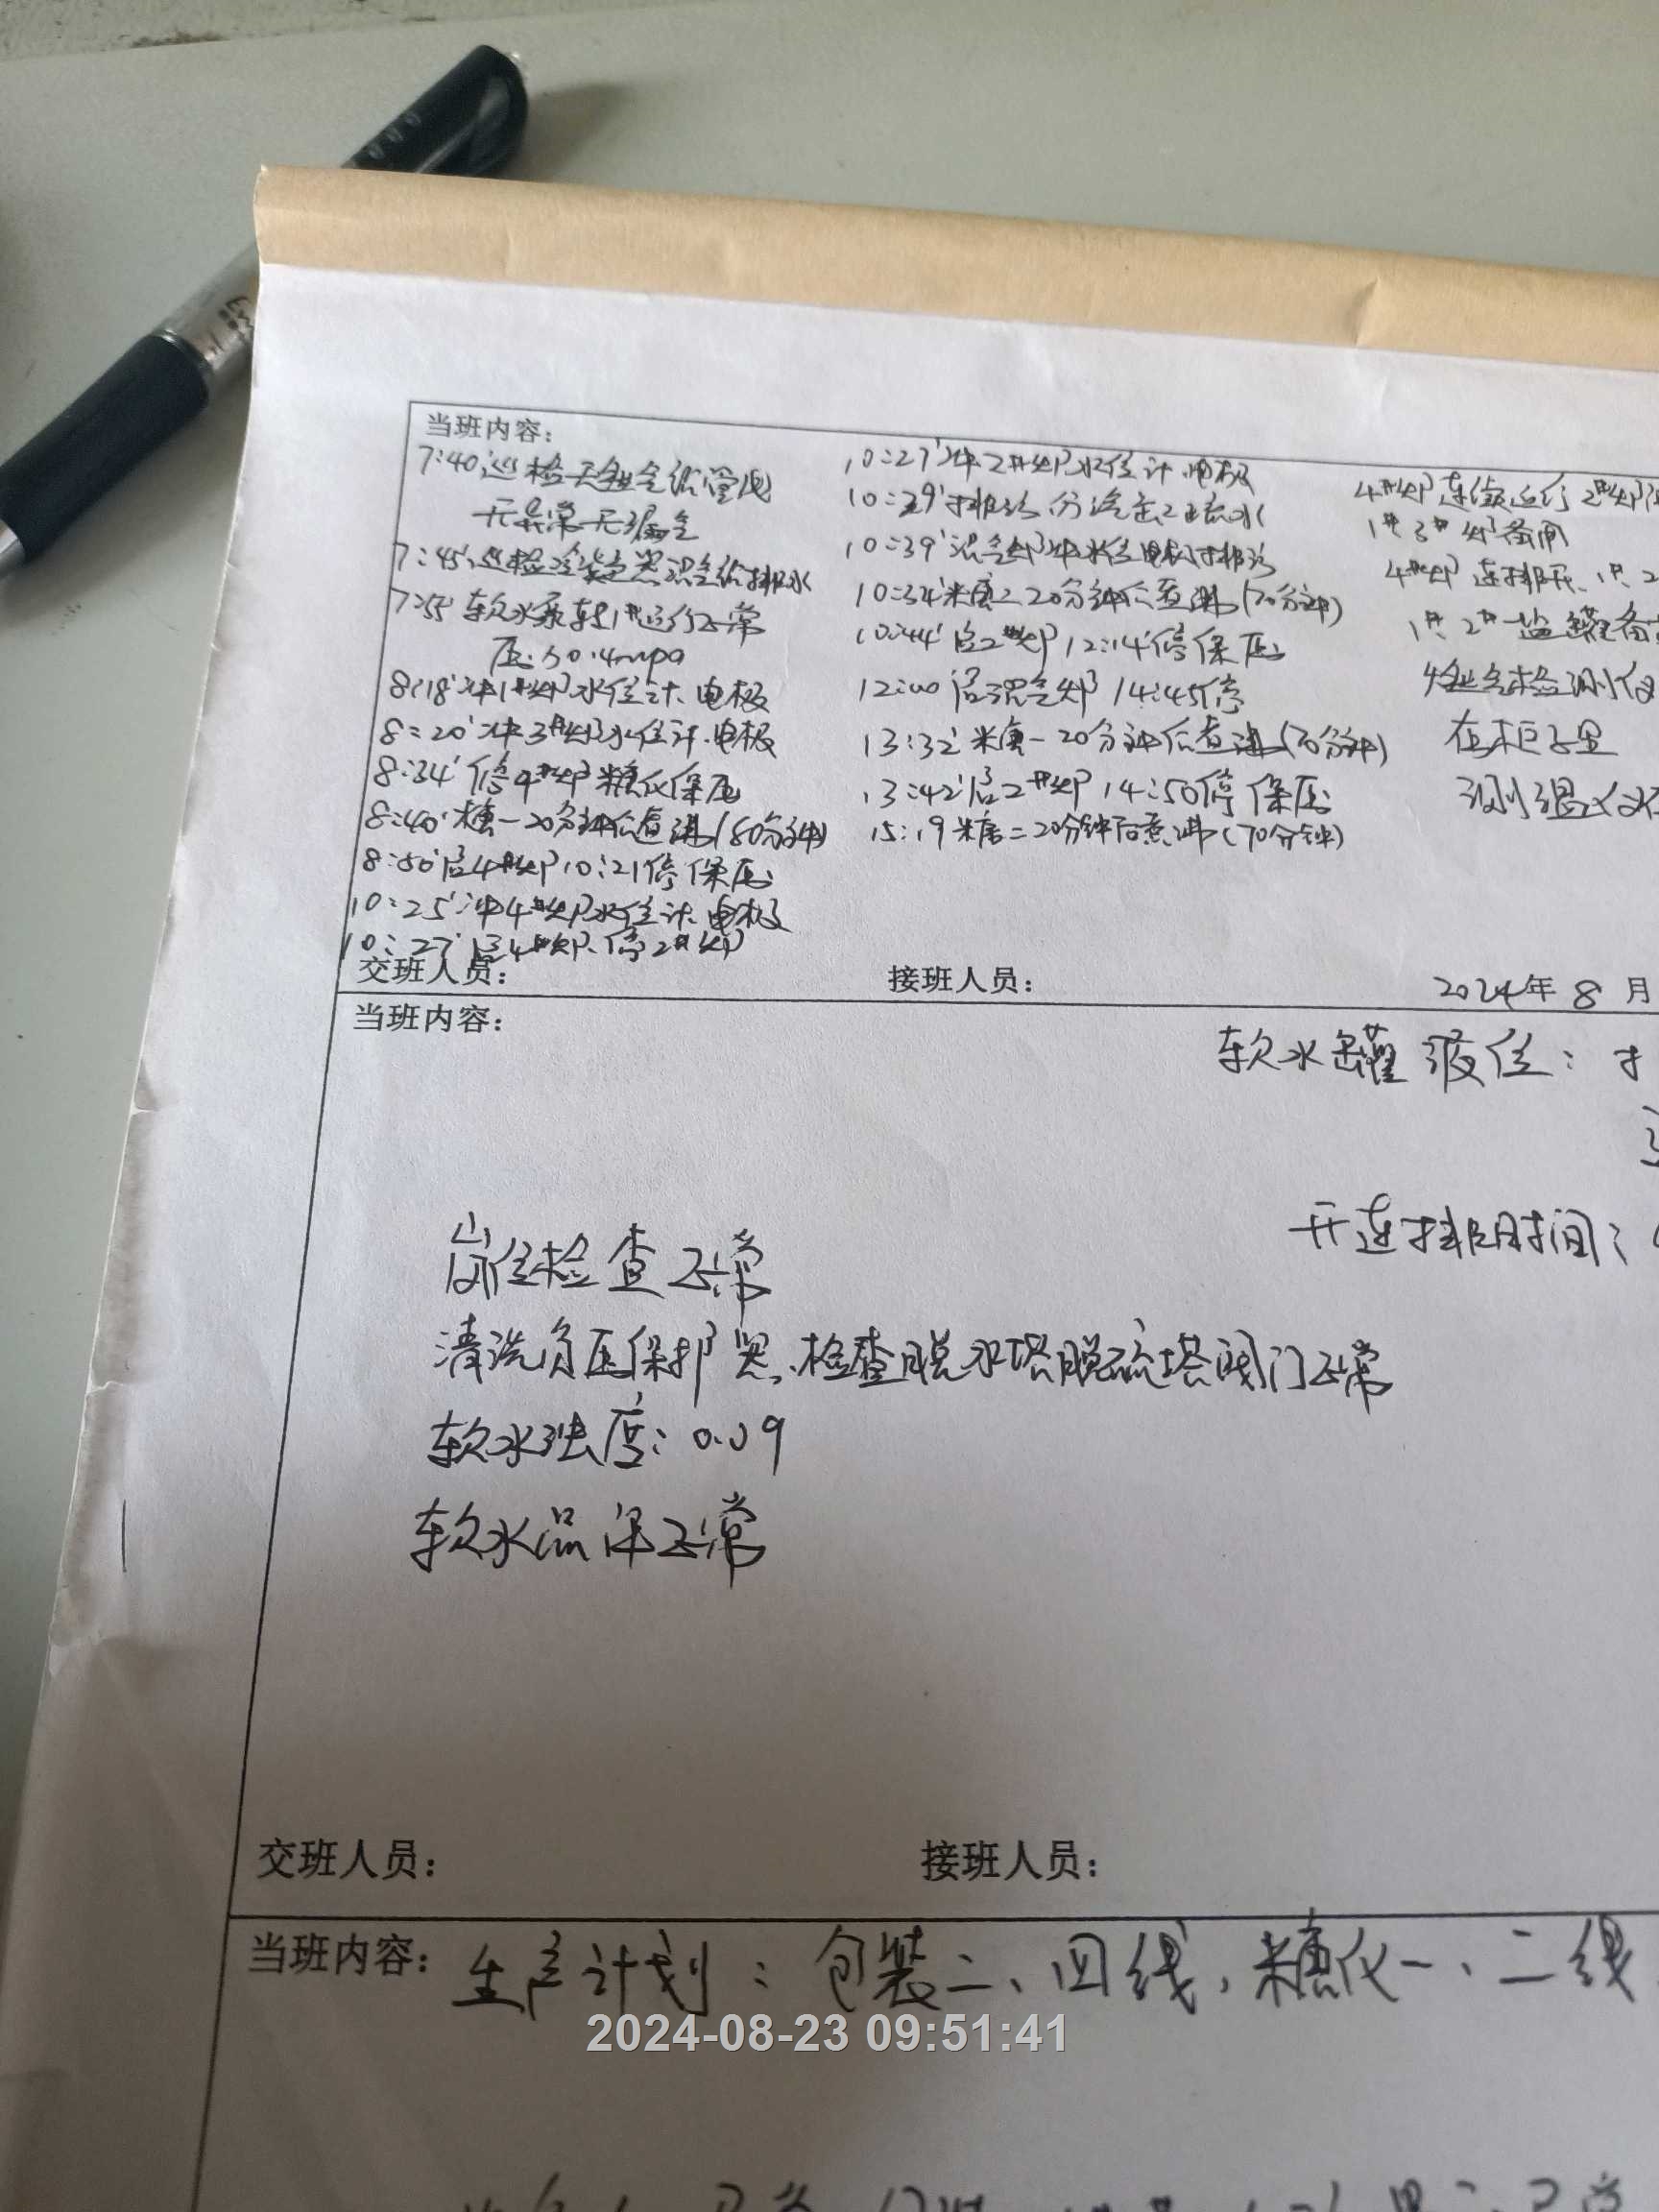 当班内容：
7:40巡检天然气给管线
无异常无漏气
7:45'巡检冷凝器沼气给排水
7:55'软水泵转1#运行正常
压力0.4mpa
8:18'冲1#炉水位计、电极
8:20'冲3#炉水位计、电极
8:34'停4#炉糖化保压
8:40'糖一20分钟后煮沸(80分钟)
8:50'启4#炉10:21停保压
10:25'冲4#炉水位计、电极
10:27'启4#炉、停2#炉
10:27'冲2#炉水位计、电极
10:29'排污分汽缸疏水
10:39'沼气炉冲水位电极排污
10:34'糖二20分钟后煮沸(70分钟)
10:44'启2#炉12:14'停保压
12:00'启沼气炉14:45停
13:32'糖一20分钟后煮沸(70分钟)
13:42'启2#炉14:50停保压
15:19糖二20分钟后煮沸(70分钟)
4#炉连续运行2#炉
1#3#炉备用
4#炉连排开、1#、2
1#、2#盐罐备
检测仪
在柜子里
测温仪
交班人员：
接班人员：
2024年8月
当班内容：
软水罐液位：
开连排时间：
岗位检查正常
清洗负压保护器、检查脱水塔脱硫塔阀门正常
软水浊度：0.09
软水品评正常
交班人员：
接班人员：
当班内容：生产计划：包装二、四线，糖化一、二线
2024-08-23 09:51:41